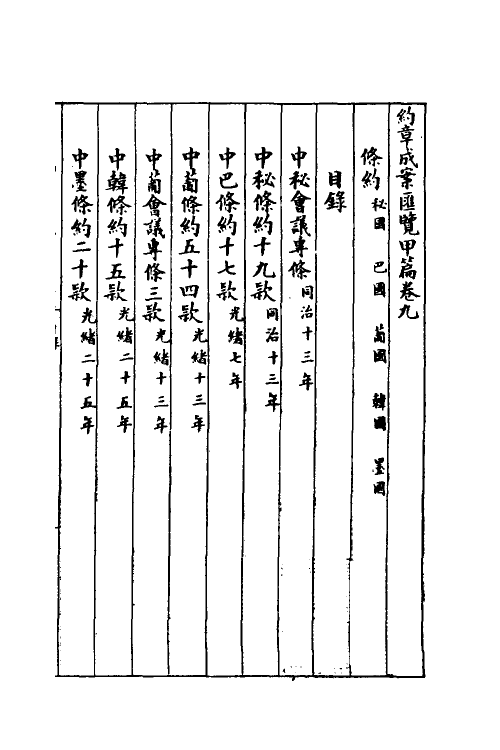 約章成案匯覽甲篇卷九
條約 秘國 巴國 葡國 韓國 墨國
目錄
中秘會議專條同治十三年
中秘條約十九款同治十三年
中巴條約十七款光緒七年
中葡條約五十四款光緒十三年
中葡會議專條三款光緒十三年
中韓條約十五款光緒二十五年
中墨條約二十款光緒二十五年